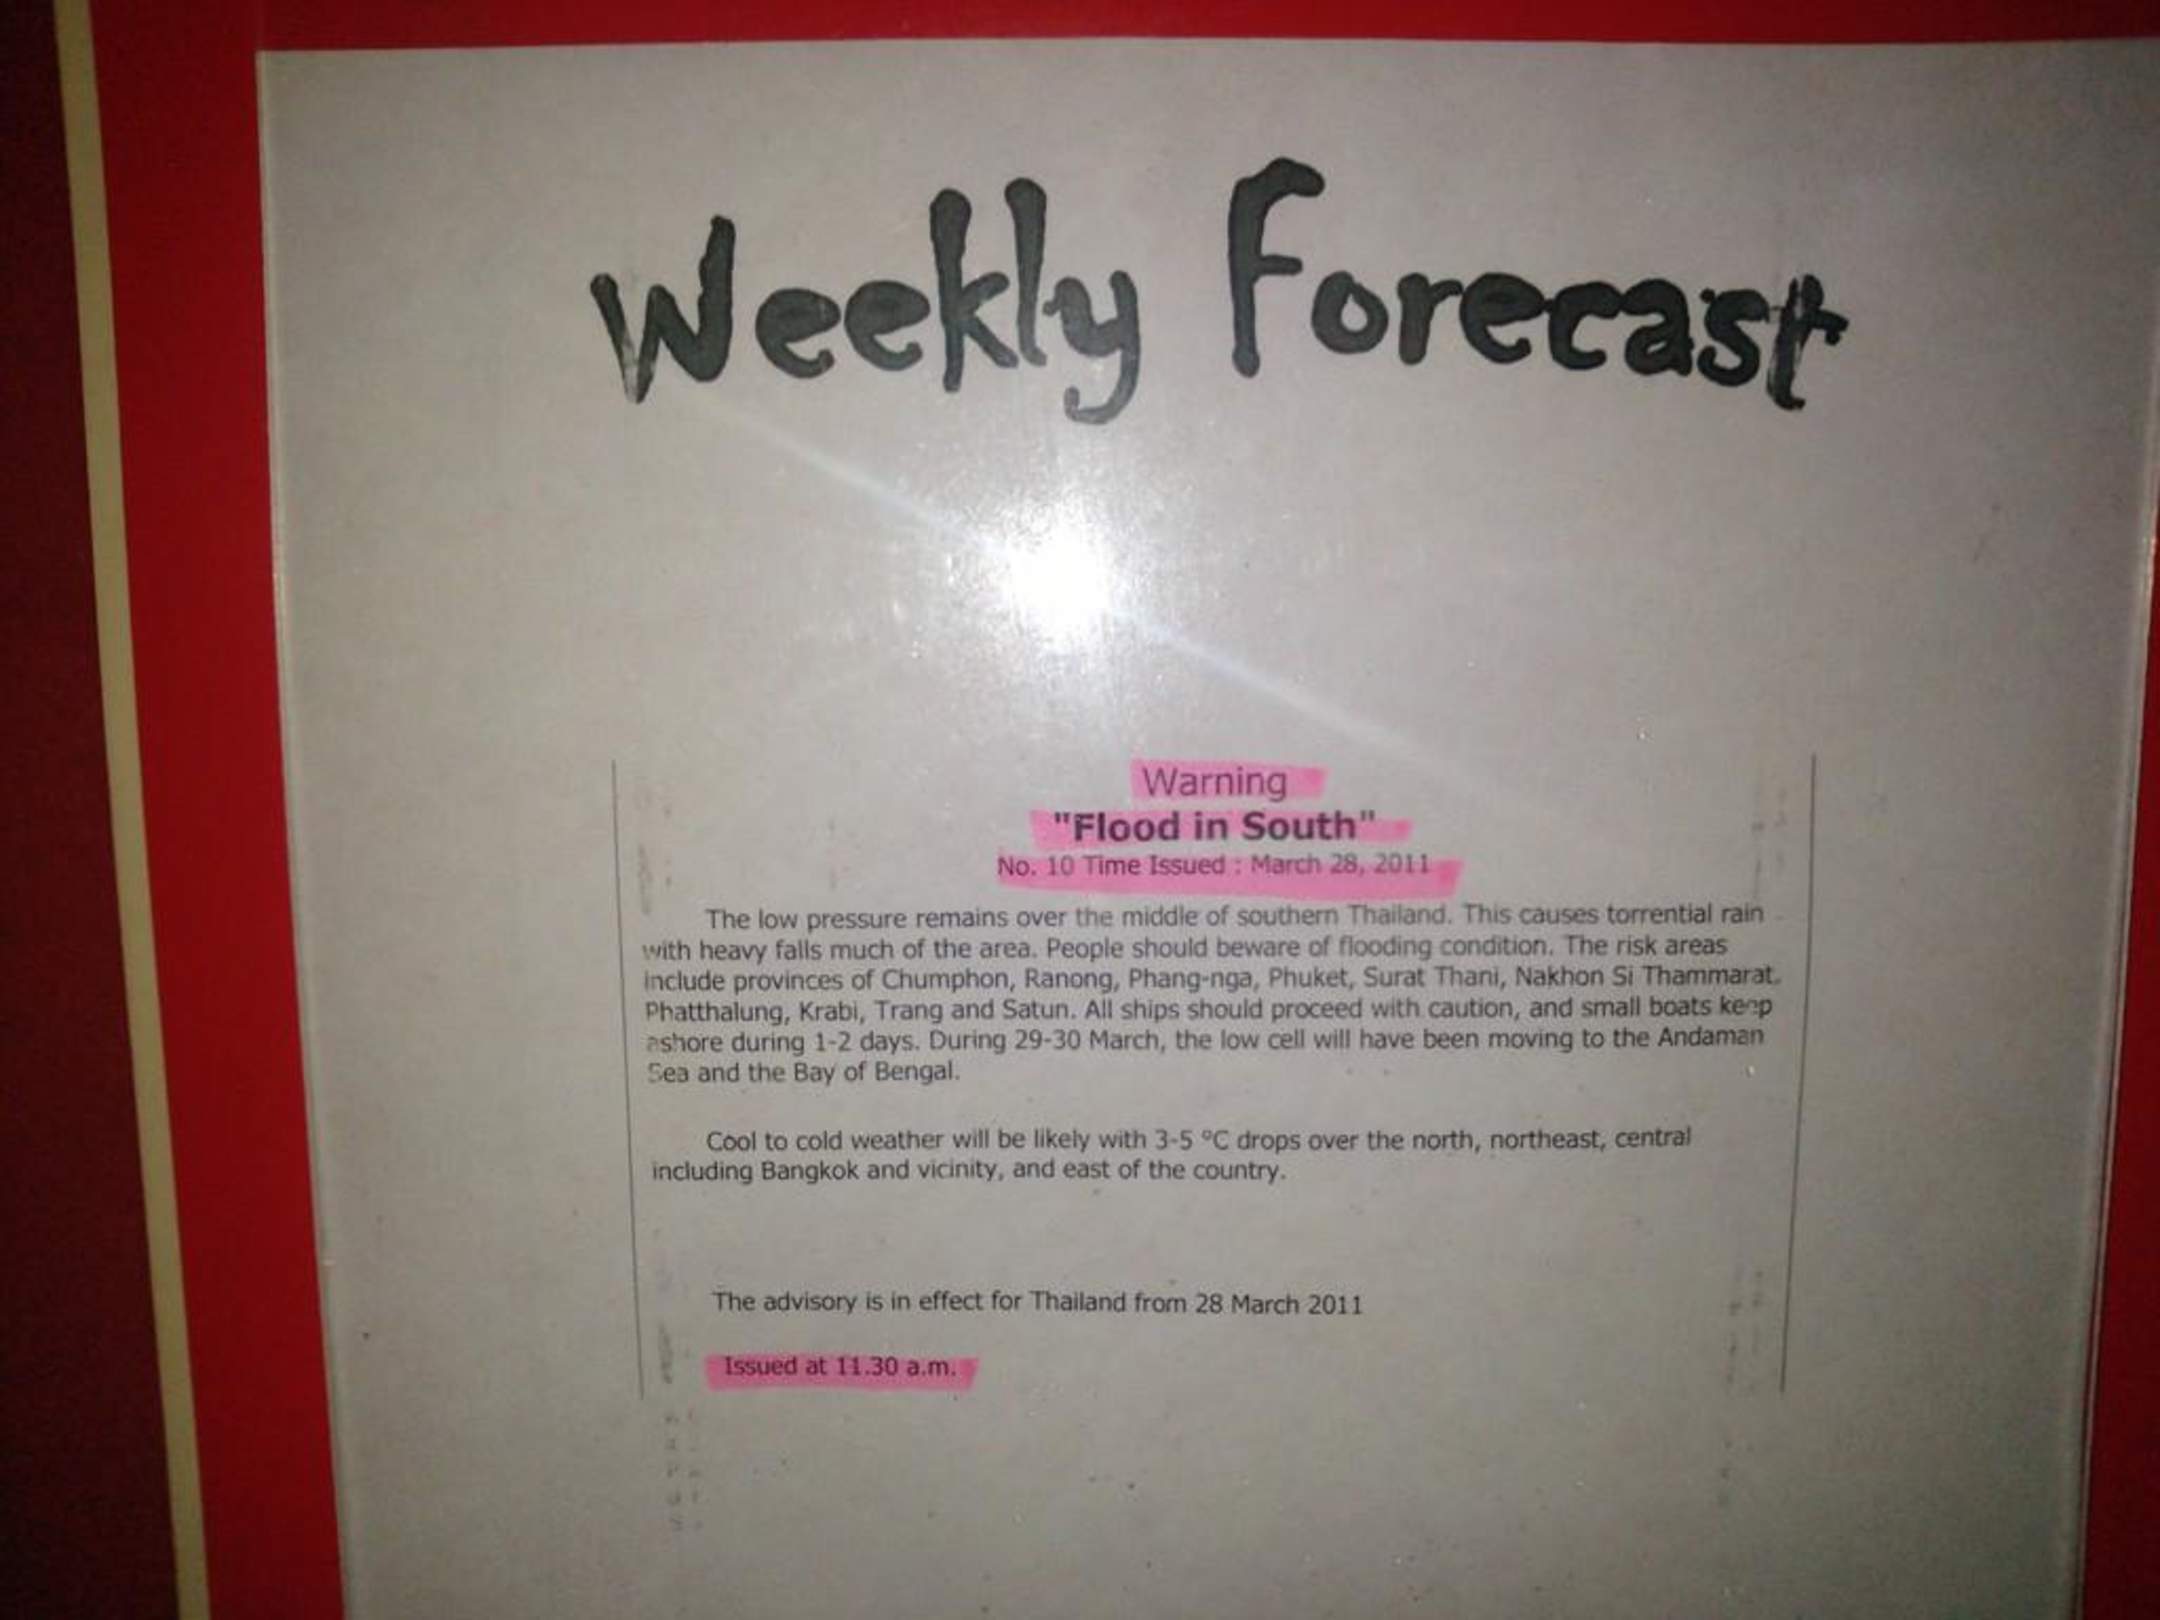 Weekly Forecast
Warning
"Flood in South"
No. 10 Time Issued : March 28, 2011
The low pressure remains over the middle of southern Thailand. This causes torrential rain
with heavy falls much of the area. People should beware of flooding condition. The risk areas
include provinces of Chumphon, Ranong, Phang-nga, Phuket, Surat Thani, Nakhon Si Thammarat,
Phatthalung, Krabi, Trang and Satun. All ships should proceed with caution, and small boats keep
ashore during 1-2 days. During 29-30 March, the low cell will have been moving to the Andaman
Sea and the Bay of Bengal.
Cool to cold weather will be likely with 3-5 °C drops over the north, northeast, central
including Bangkok and vicinity, and east of the country.
The advisory is in effect for Thailand from 28 March 2011
Issued at 11.30 a.m.